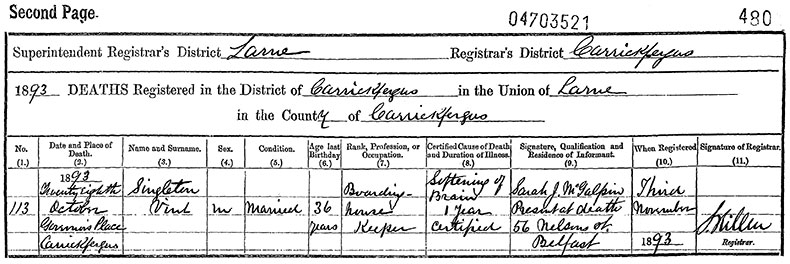 Second Page.
04703521 480
Superintendent Registrar's District Larne Registrar's District Carrickfergus
1893 DEATHS Registered in the District of Carrickfergus in the Union of Larne
in the County of Carrickfergus
No. Date and Place of Death. Name and Surname. Sex. Condition. Age last Birthday Rank, Profession, or Occupation. Certified Cause of Death and Duration of Illness. Signature, Qualification and Residence of Informant. When Registered Signature of Registrar.
(1.) (2.) (3.) (4.) (5.) (6.) (7.) (8.) (9.) (10.) (11.)
1893
Twenty eighth Singleton Boarding- Softening of Brain Sarah J. McGalpin Third
113 October Vint M Married 36 house 1 Year Present at death November
Place years Keeper Certified 56 Nelson St.
Carrickfergus Belfast 1893 Registrar.